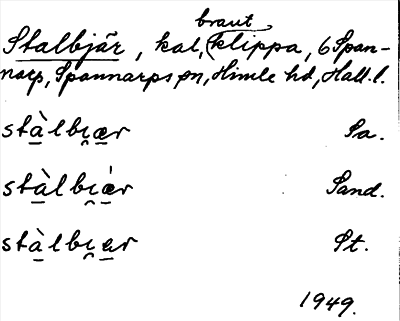 Stalbjär, kal, braut klippa, 6 Span-
narp, Spannarps sn, Himle hd, Hall. l.
stàlbi̯ær Sa.
stàlbi̯ǽr Sand.
stàlbi̯ær St.
1949.